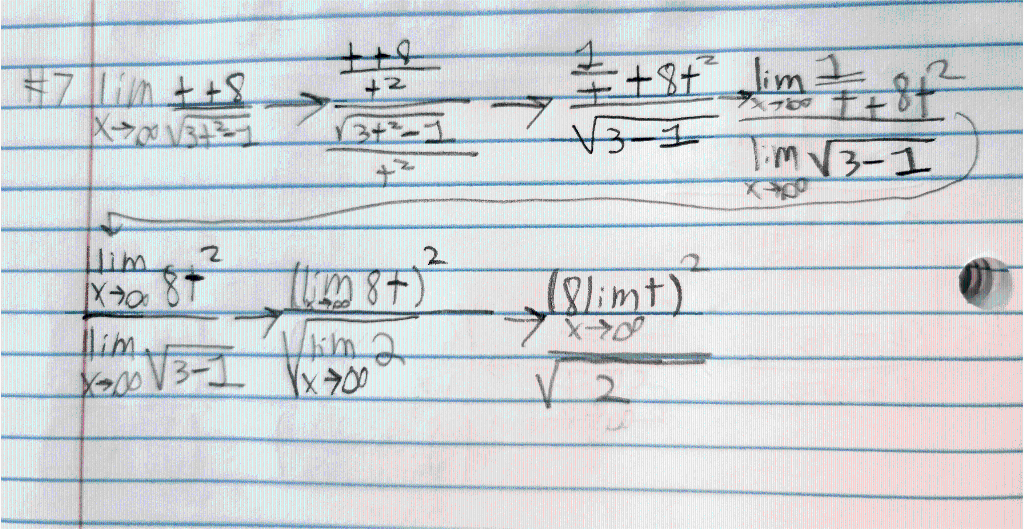 #7 lim x→∞ (t+8)/(√(3t²-1)) → ((t+8)/(t²))/((√(3t²-1))/(t²)) → ((1/t)+8t²)/(√(3-1)) → (lim x→∞ (1/t)+8t²)/(lim x→∞ √(3-1))
(lim x→∞ 8t²)/(lim x→∞ √(3-1)) → (lim x→∞ 8t)²/(√(lim x→∞ 2)) → (8 lim x→∞ t)²/(√2)